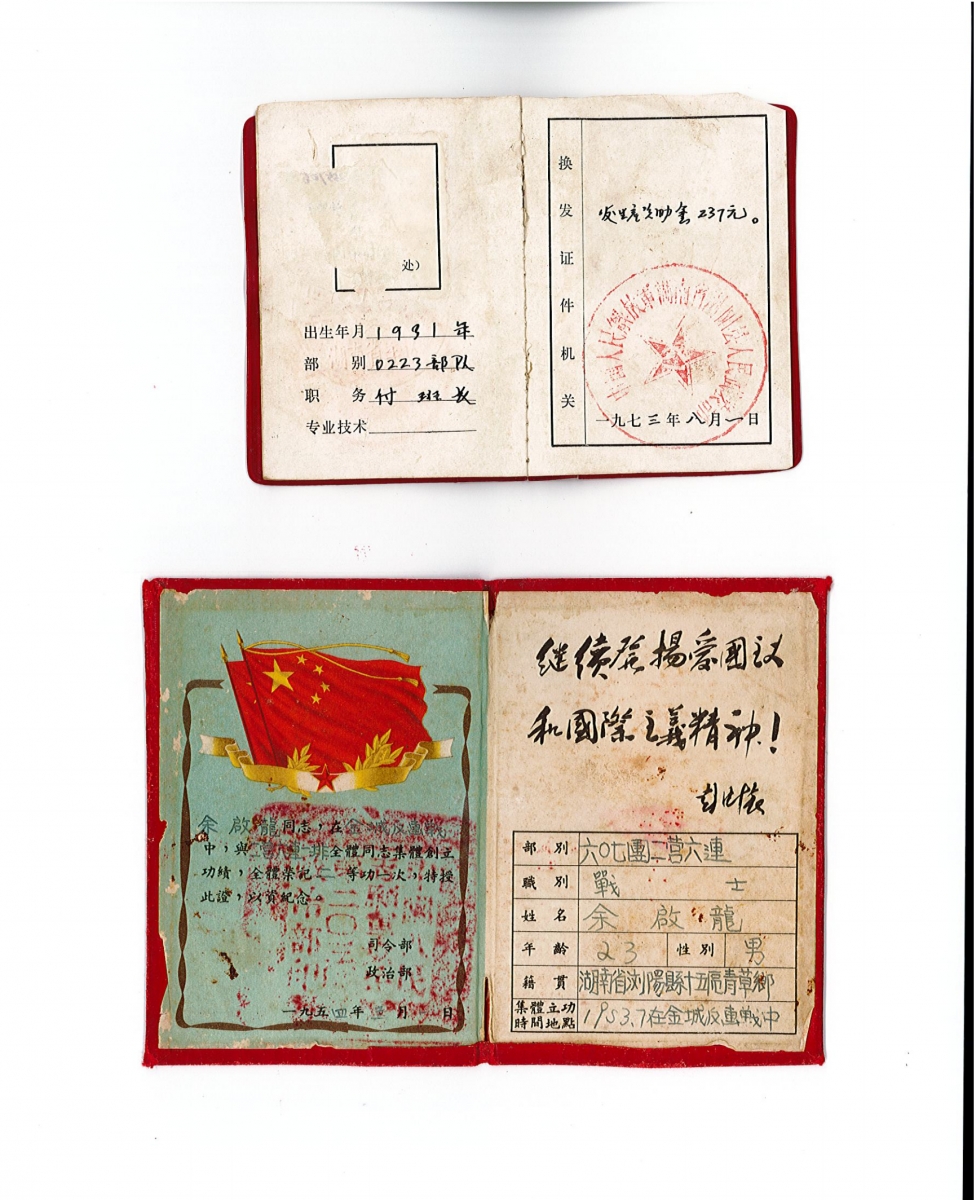 处）
出生年月 1931年
部别 0223部队
职务 付班长
专业技术
换发证件机关
发生产资助金237元。
中国人民解放军湖南省浏阳县人民武装部
一九七三年八月一日
继续发扬爱国主义
和國際主義精神！
彭德怀
余啟龍同志，在金城反擊戰
中，與二營六連一排全體同志集體創立
功績，全體榮記二等功一次，特授
此證，以資紀念。
司令部
政治部
一九五四年 月 日
部別 六〇七團二营六連
職別 戰士
姓名 余啟龍
年齡 23 性別 男
籍貫 湖南省浏陽縣十五區青草鄉
集體立功
時間地點 1953.7在金城反擊戰中